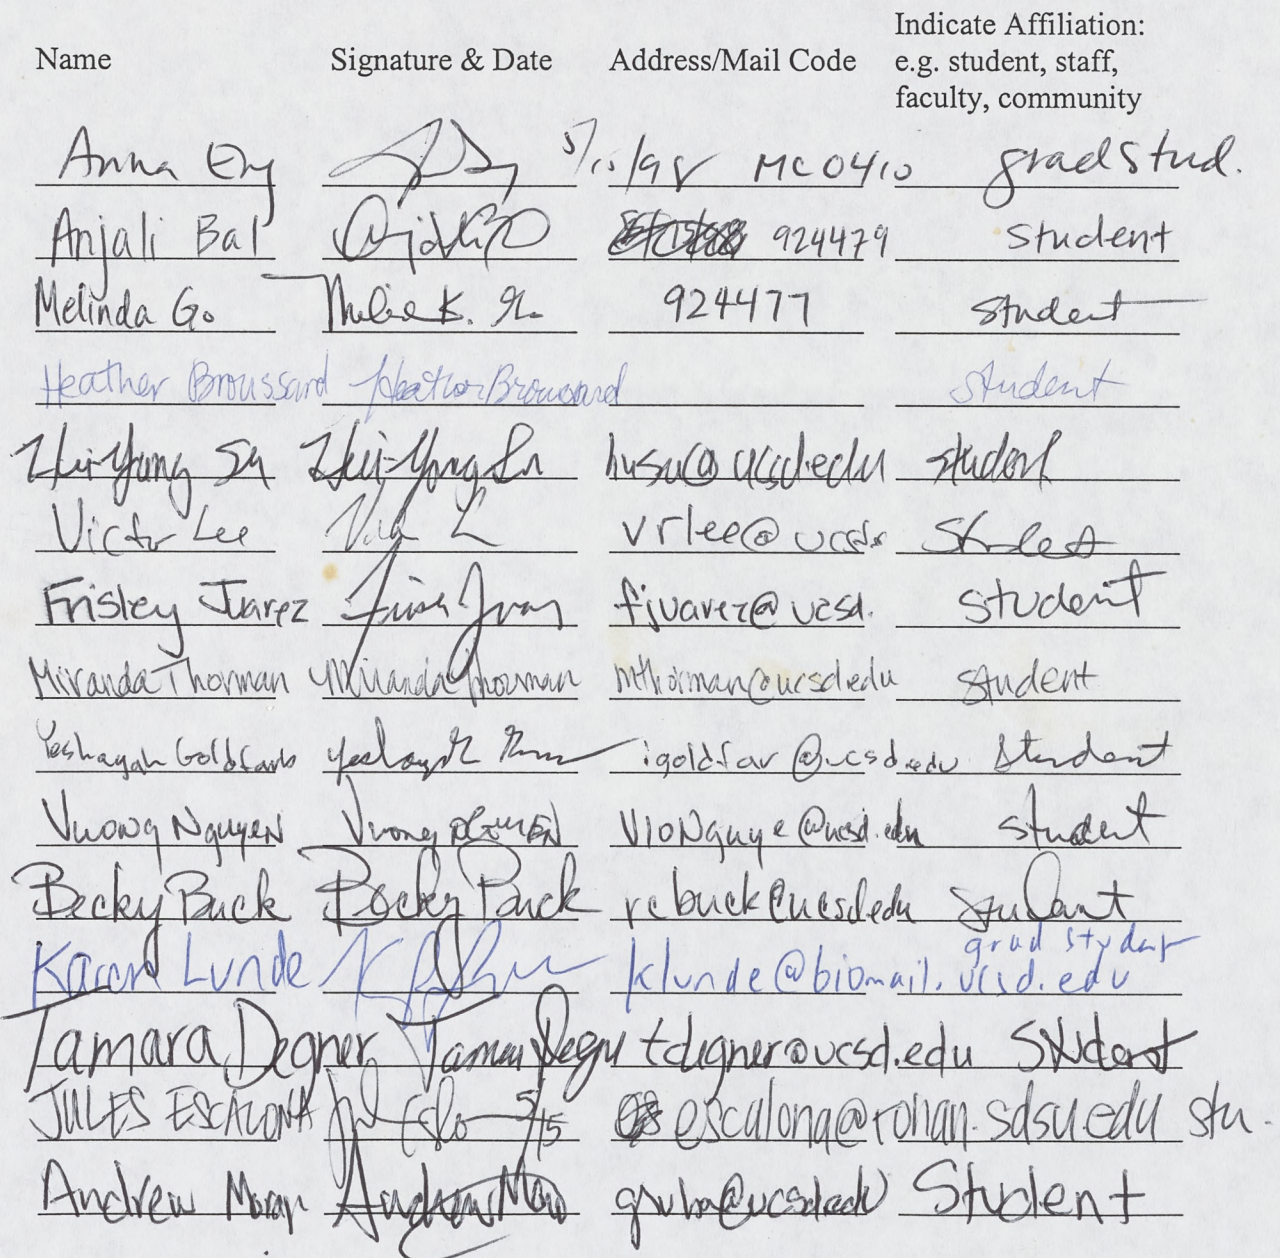 Name Signature & Date Address/Mail Code Indicate Affiliation:
e.g. student, staff,
faculty, community
Anna 5/15/98 MC 0410 grad stud.
Anjali Bal 924479 student
Melinda Go 924477 student
Heather Broussard Heather Broussard student
Hui-Yung Su Hui-Yung Su hvsu@ucsd.edu student
Victor Lee vrlee@ucsd student
Frisley Juarez fjuarez@ucsd. student
Miranda Thorman Miranda Thorman mthorman@ucsd.edu student
Yeshayah Goldfarb igoldfar@ucsd.edu student
Vuong Nguyen Vuong Nguyen student
Becky Buck Becky Buck rebuck@ucsd.edu student
Karen Lunde klunde@biomail.ucsd.edu grad student
Tamara Degner Tamara Degner tdegner@ucsd.edu student
JULES ESCALONA 5/15 escalona@rohan.sdsu.edu stu.
Andrew Moran student